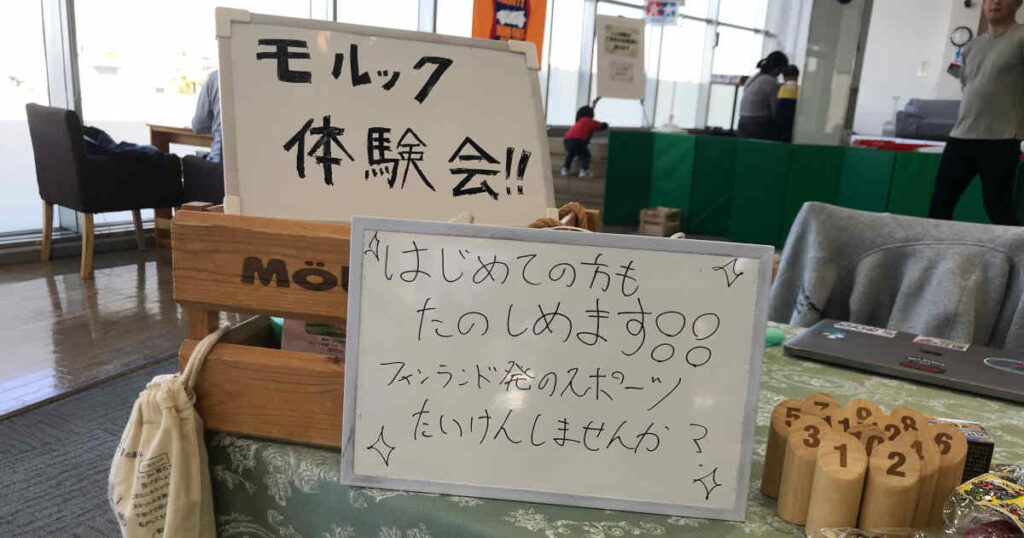 モルック
体験会!!
MÖL
はじめての方も
たのしめます
フィンランド発のスポーツ
たいけんしませんか？
5
7
3
1
2
6
8